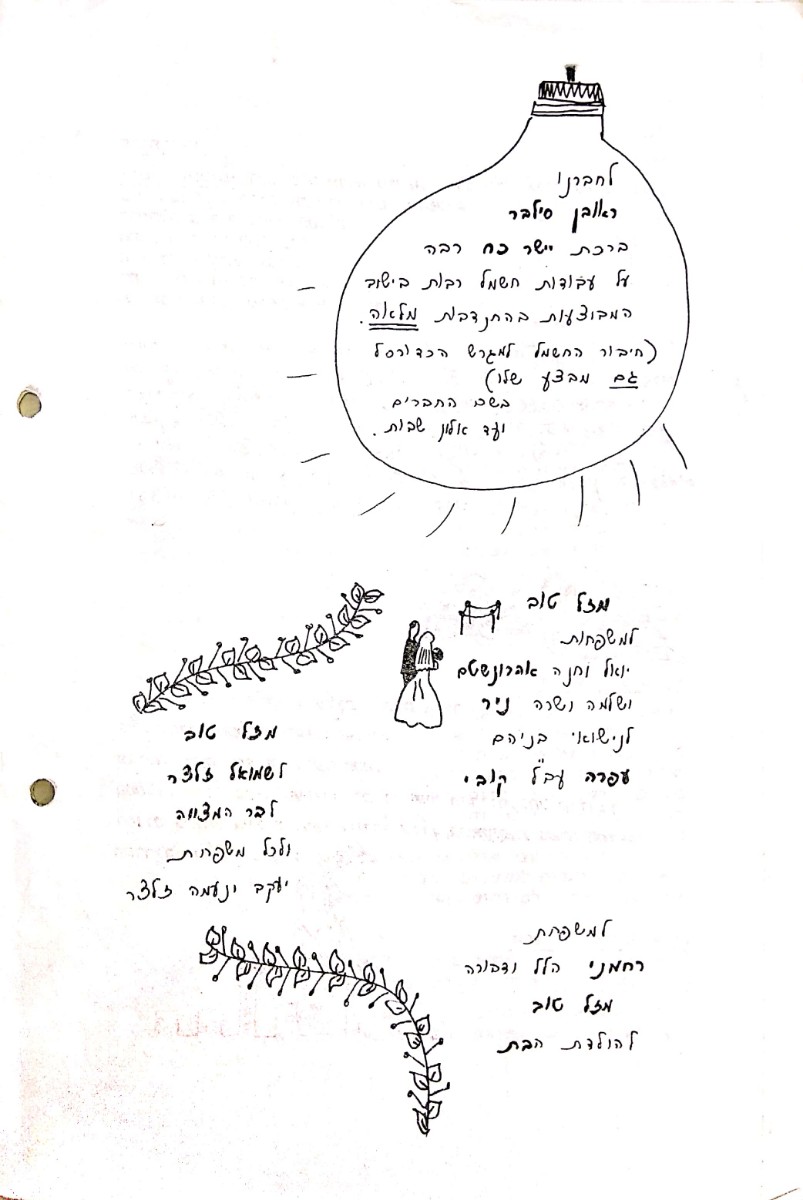 לחברנו
ראובן סילבר
ברכת יישר כח רבה
על עבודות חשמל רבות בישוב
המבוצעות בהתנדבות מלאה.
(חיבור החשמל למגרש הכדורסל
גם מבצע שלו)
בשם החברים
ועד אלון שבות.
מזל טוב
למשפחות
יואל וחנה אהרונשטם
ושלמה ושרה ניר
לנישואי בניהם
עפרה עב"ל קובי
מזל טוב
לשמואל זלצר
לבר המצווה
ולכל משפחת
יעקב ונעמה זלצר
למשפחת
רחמני הלל ודבורה
מזל טוב
להולדת הבת